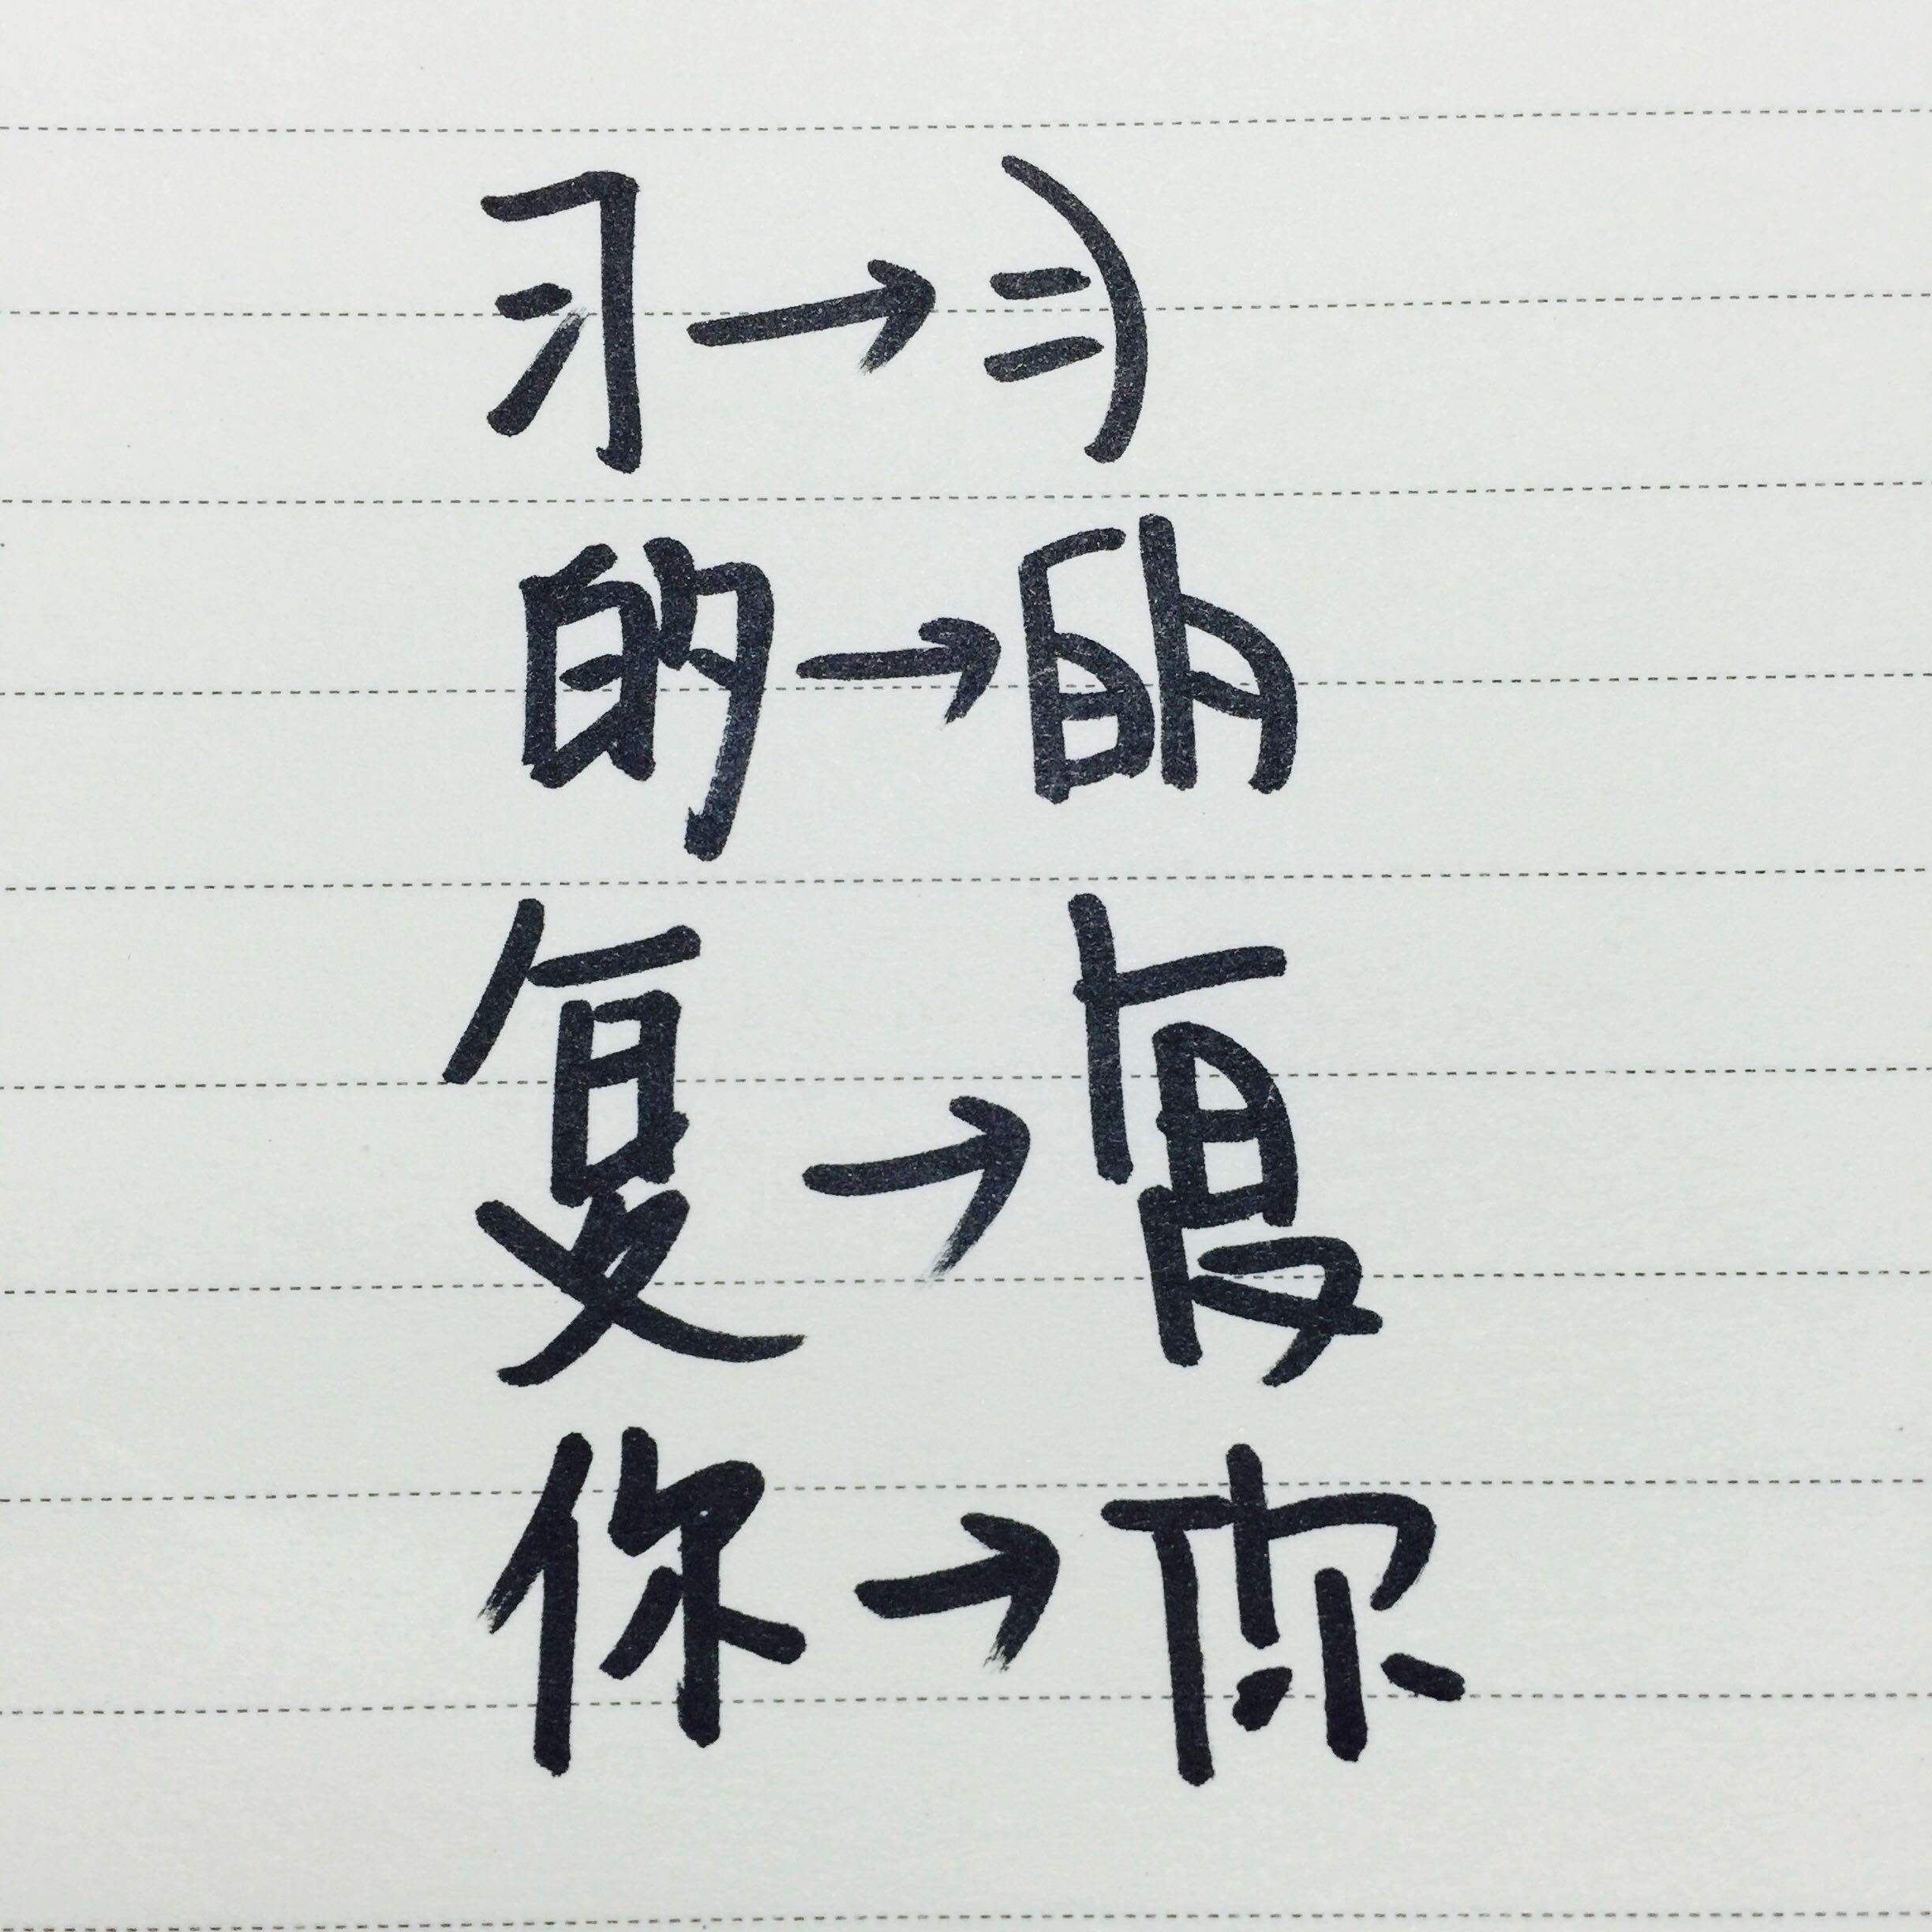 习→习
的→的
复→复
你→你